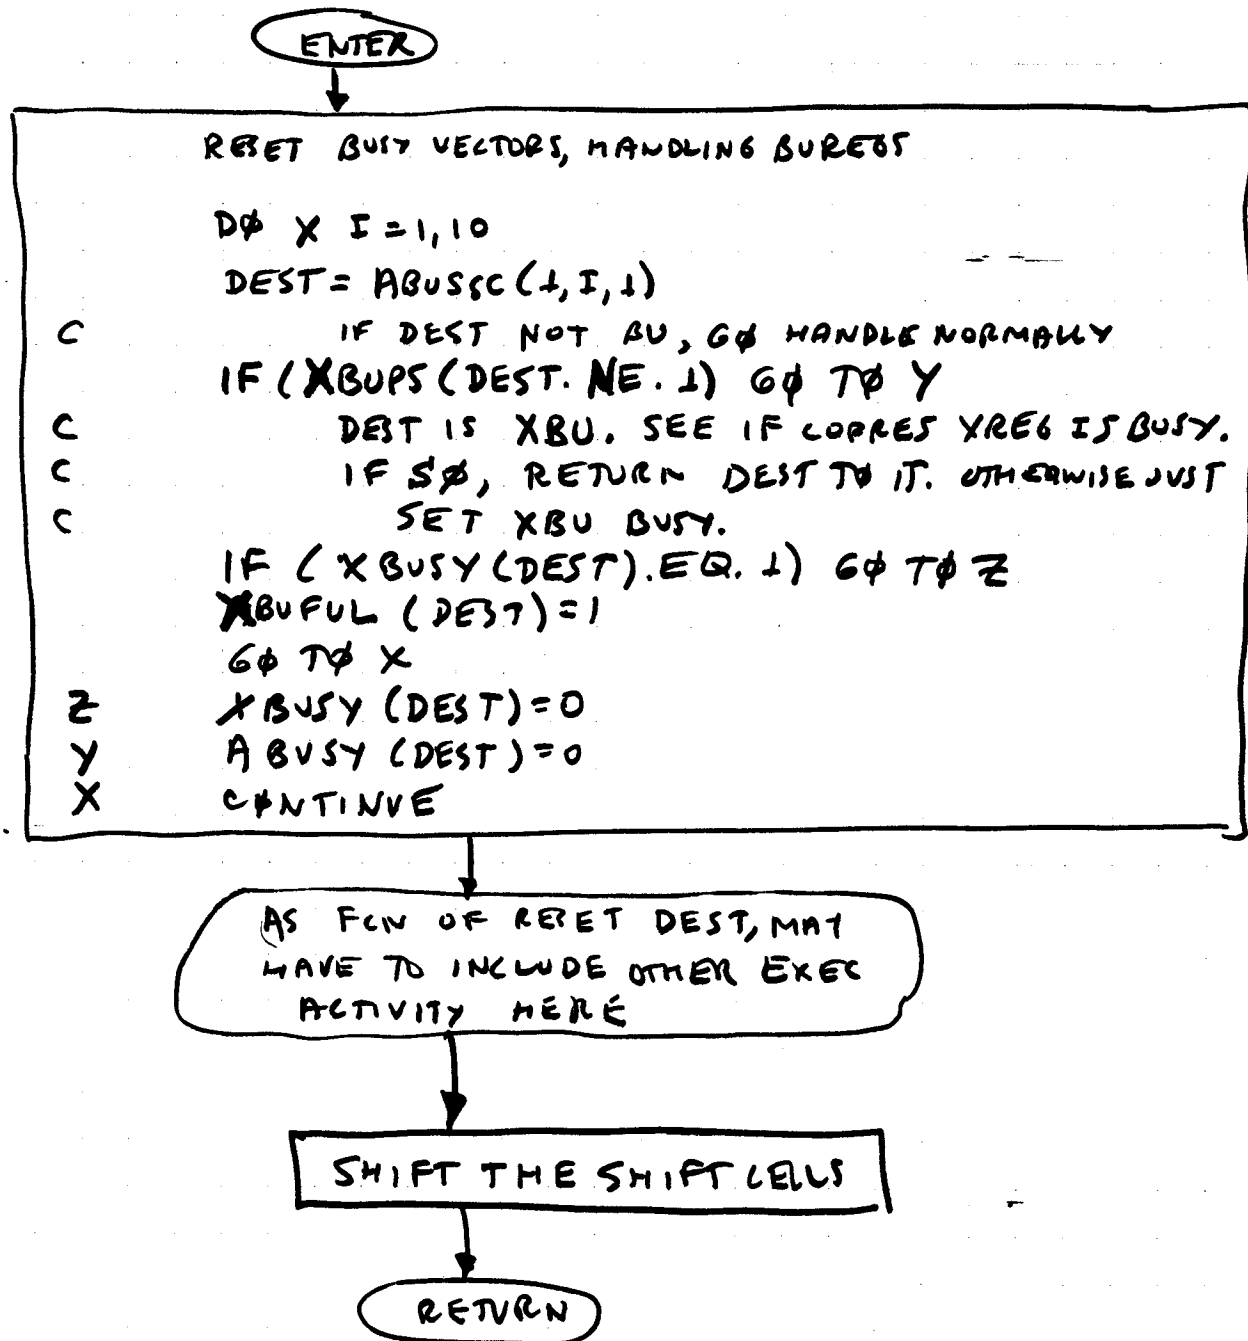 ENTER
RESET BUSY VECTORS, HANDLING BUREGS
DØ X I = 1, 10
DEST = ABUSSC (1, I, 1)
C IF DEST NOT BU, GØ HANDLE NORMALLY
IF (XBUPS (DEST. NE. 1) GØ TØ Y
C DEST IS XBU. SEE IF CORRES XREG IS BUSY.
C IF SØ, RETURN DEST TØ IT. OTHERWISE JUST
C SET XBU BUSY.
IF (XBUSY (DEST).EQ. 1) GØ TØ Z
XBUFUL (DEST) = 1
GØ TØ X
Z XBUSY (DEST) = 0
Y ABUSY (DEST) = 0
X CØNTINUE
AS FCN OF RESET DEST, MAY
HAVE TO INCLUDE OTHER EXEC
ACTIVITY HERE
SHIFT THE SHIFT CELLS
RETURN